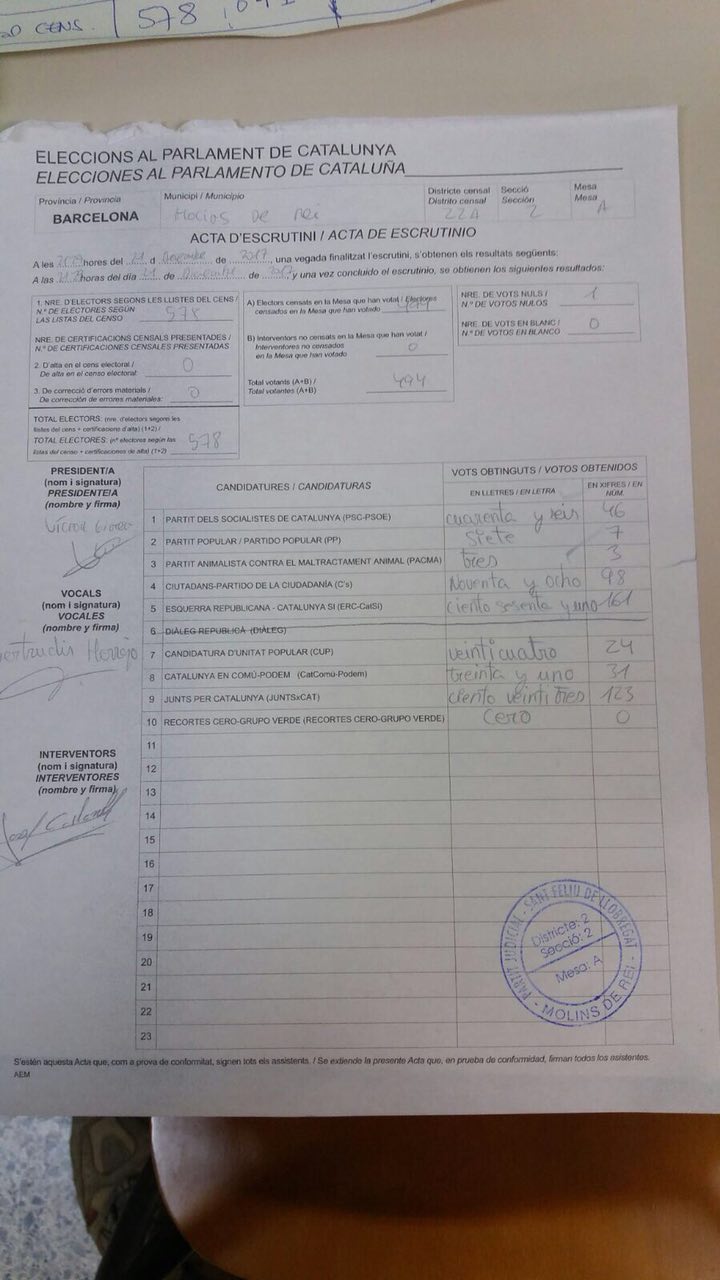 CENS. 578
ELECCIONS AL PARLAMENT DE CATALUNYA
ELECCIONES AL PARLAMENTO DE CATALUÑA
Provincia / Provincia
BARCELONA
Municipi / Municipio
de rei
Districte censal
Distrito censal
Secció
Sección 2
Mesa
Mesa A
ACTA D'ESCRUTINI / ACTA DE ESCRUTINIO
A les hores del 21 d Diciembre de 2017, una vegada finalitzat l'escrutini, s'obtenen els resultats següents:
A las horas del día 21 de Diciembre de 2017 y una vez concluido el escrutinio, se obtienen los siguientes resultados:
1. NRE. D'ELECTORS SEGONS LES LLISTES DEL CENS /
N.º DE ELECTORES SEGÚN
LAS LISTAS DEL CENSO 578
NRE. DE CERTIFICACIONS CENSALS PRESENTADES /
N.º DE CERTIFICACIONES CENSALES PRESENTADAS
2. D'alta en el cens electoral /
De alta en el censo electoral: 0
3. De correcció d'errors materials /
De corrección de errores materiales: 0
TOTAL ELECTORS: (nre. d'electors segons les
llistes del cens + certificacions d'alta) (1+2) /
TOTAL ELECTORES: (nº electores según las
listas del censo + certificaciones de alta) (1+2) 578
A) Electors censats en la Mesa que han votat / Electores
censados en la Mesa que han votado 494
B) Interventors no censats en la Mesa que han votat /
Interventores no censados
en la Mesa que han votado 0
Total votants (A+B) /
Total votantes (A+B) 494
NRE. DE VOTS NULS /
N.º DE VOTOS NULOS 1
NRE. DE VOTS EN BLANC /
N.º DE VOTOS EN BLANCO 0
PRESIDENT/A
(nom i signatura)
PRESIDENTE/A
(nombre y firma)
VOCALS
(nom i signatura)
VOCALES
(nombre y firma)
INTERVENTORS
(nom i signatura)
INTERVENTORES
(nombre y firma)
CANDIDATURES / CANDIDATURAS
VOTS OBTINGUTS / VOTOS OBTENIDOS
EN LLETRES / EN LETRA
EN XIFRES / EN NÚM.
1 PARTIT DELS SOCIALISTES DE CATALUNYA (PSC-PSOE) cuarenta y seis 46
2 PARTIT POPULAR / PARTIDO POPULAR (PP) Siete 7
3 PARTIT ANIMALISTA CONTRA EL MALTRACTAMENT ANIMAL (PACMA) tres 3
4 CIUTADANS-PARTIDO DE LA CIUDADANÍA (C's) Noventa y ocho 98
5 ESQUERRA REPUBLICANA - CATALUNYA SI (ERC-CatSí) ciento sesenta y uno 161
6 DIÀLEG REPUBLICÀ (DIÀLEG)
7 CANDIDATURA D'UNITAT POPULAR (CUP) veinticuatro 24
8 CATALUNYA EN COMÚ-PODEM (CatComú-Podem) treinta y uno 31
9 JUNTS PER CATALUNYA (JUNTSxCAT) ciento veintitres 123
10 RECORTES CERO-GRUPO VERDE (RECORTES CERO-GRUPO VERDE) Cero 0
11
12
13
14
15
16
17
18
19
20
21
22
23
PARTIT JUDICIAL - SANT FELIU DE LLOBREGAT - MOLINS DE REI -
Districte: 2
Secció: 2
Mesa: A
S'estén aquesta Acta que, com a prova de conformitat, signen tots els assistents. / Se extiende la presente Acta que, en prueba de conformidad, firman todos los asistentes.
AEM